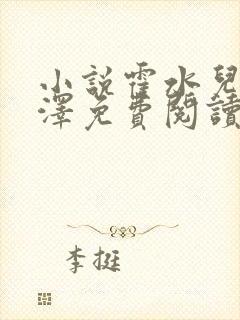 小説霍水兒
澤免費閱讀
李挺